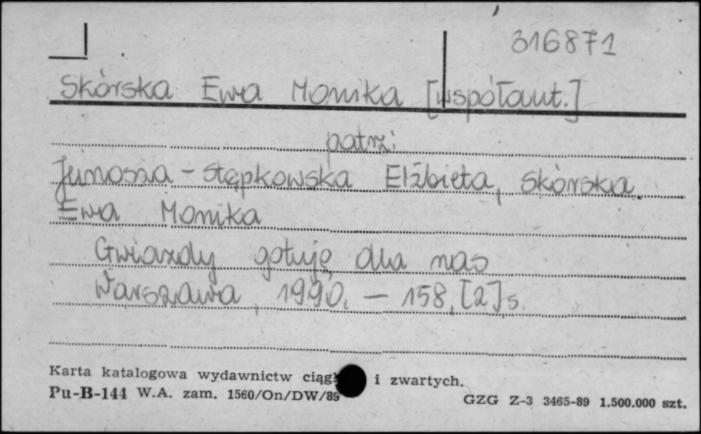 316871
Skórska Ewa Monika [współaut.]
patrz:
Junosza-Stępkowska Elżbieta, Skórska
Ewa Monika
Gwiazdy gotują dla nas
Warszawa, 1990. — 158, [2] s
Karta katalogowa wydawnictw ciągł i zwartych.
Pu-B-144 W.A. zam. 1560/On/DW/89
GZG Z-3 3465-89 1.500.000 szt.